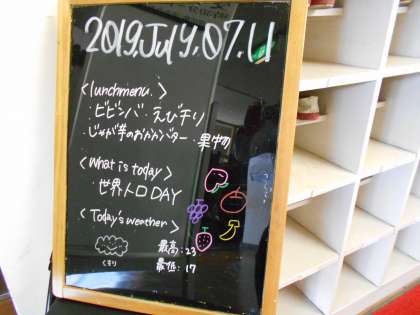 2019.July.07.11
<lunchmenu.>
・ビビンバ・えびチリ
・じゃが芋のおかかバター・果物
<What is today>
・世界人口DAY
<Today's weather>
くもり
最高:23
最低:17